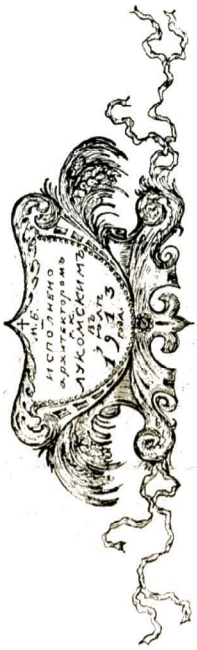 М.Б.
ИСПОЛНЕНО
архитекторомъ
ЛУКОМСКИМЪ
въ
1913
году.